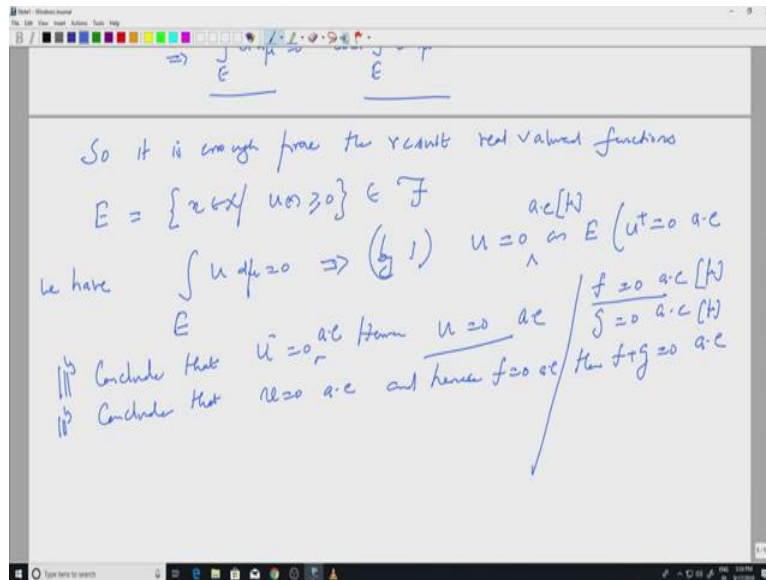 Note1 - Windows Journal
File Edit View Insert Actions Tools Help
⇒ ∫ dμ = 0 ∫
E E
So it is enough prove the result real valued functions
E = {x ∈ X / u(x) ≥ 0} ∈ F
We have ∫_E u dμ = 0 ⇒ (by 1) u = 0 a.e [μ] on E (u⁺ = 0 a.e
|||ly Conclude that u⁻ = 0 a.e Hence u = 0 a.e
|||ly Conclude that v = 0 a.e and hence f = 0 a.e
f = 0 a.e [μ]
g = 0 a.e [μ]
then f + g = 0 a.e
Type here to search